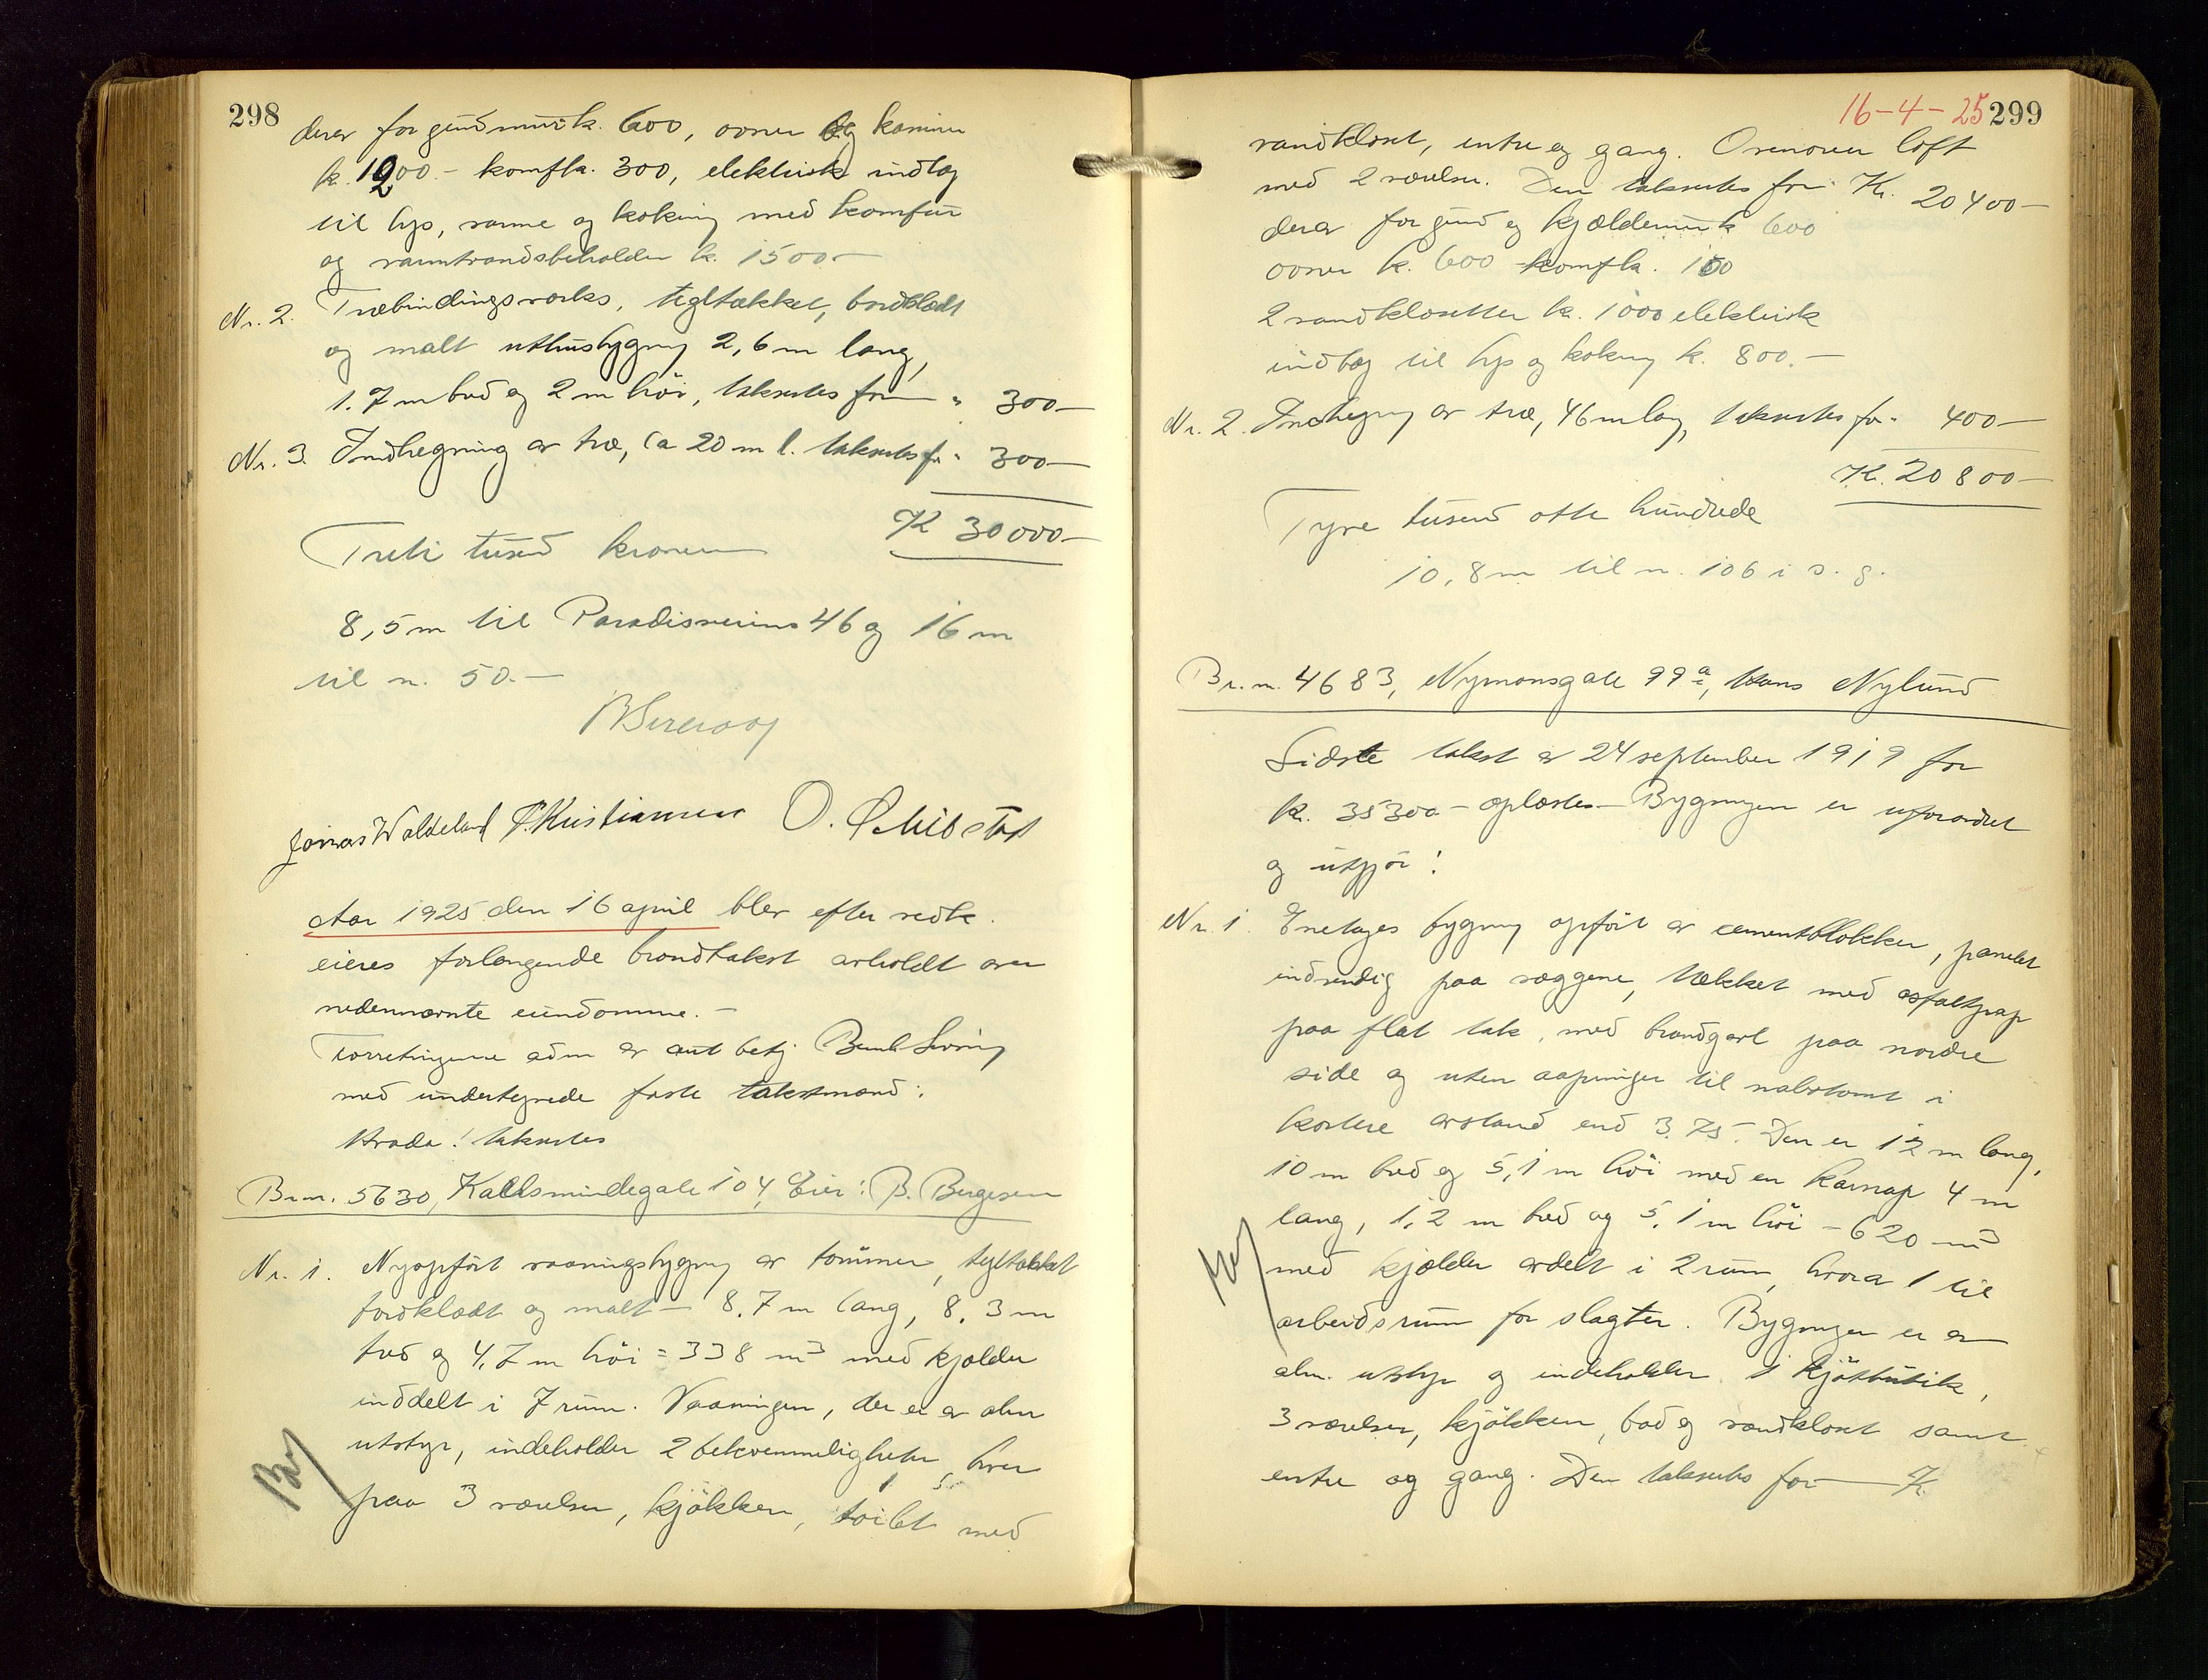 298
derav for grundmur k. 600, ovner og kaminer
k. 1200.- komf k. 300, elektrisk indlæg
til lys, varme og koking med komfur
og varmtvandsbeholder k. 1500-
Nr. 2. Træbindingsverks, tegltækket, bordklædt
og malt uthusbygning 2,6 m lang,
1.7 m bred og 2 m høi, takseres for - " 300-
Nr. 3. Indhegning av træ, ca 20 m l. takseres f. " 300-
K 30000-
Treti tusend kroner
8,5 m til Paradisveiens 46 og 16 m
til n. 50.-
Jonas Waldeland T. Kristiansen O. Schibstad
Aar 1925 den 16 april blev efter vedk.
eieres forlangende brandtakst avholdt over
nedennævnte eiendomme.-
Forretningene adm av aut betj.
med undertegnede faste takstmænd:
Hvada! takseres
Br.nr. 5630, Kallsmindegate 104, Eier: B. Bergesen
Nr. 1. Nyopført vaaningsbygning av tømmer, tegltækket
bordklædt og malt - 8.7 m lang, 8.3 m
bred og 4,7 m høi = 338 m3 med kjælder
inddelt i 7 rum. Vaaningen, der er av alm
utstyr, indeholder 2 bekvemmeligheter, hver
paa 3 værelser, kjøkken, toilet med
16-4-25 299
vandkloset, entre og gang. Ovenover loft
med 2 værelser. Den takseres for Kr. 20400-
derav for grund og kjældermur k 600
ovner k. 600 komf k. 150
2 vandklosetter k. 1000 elektrisk
indlæg til lys og koking k. 800.-
Nr. 2. Indhegning av træ, 46 m lang, takseres for " 400-
K. 20800-
Tyve tusend otte hundrede
10,8 m til n. 106 i s. g.
Br.nr. 4683, Nymansgate 99a, Hans Nylund
Sidste takst av 24 september 1919 for
k. 35300- oplæstes- Bygningen er uforandret
og utgjør:
Nr. 1. Enetages bygning opført av cementblokker, panelet
indvendig paa væggene, tækket med asfaltpap
paa flat tak, med brandgavl paa nordre
side og uten aapninger til nabotomt i
kortere avstand end 3.75. Den er 12 m lang,
10 m bred og 5,1 m høi med en karnap 4 m
lang, 1,2 m bred og 5,1 m høi - 620 m3
med kjælder avdelt i 2 rum, hvorav 1 til
arbeidsrum for slagter. Bygningen er av
alm. utstyr og indeholder 1 kjøtbutik,
3 værelser, kjøkken, bad og vandkloset samt
entre og gang. Den takseres for - K.